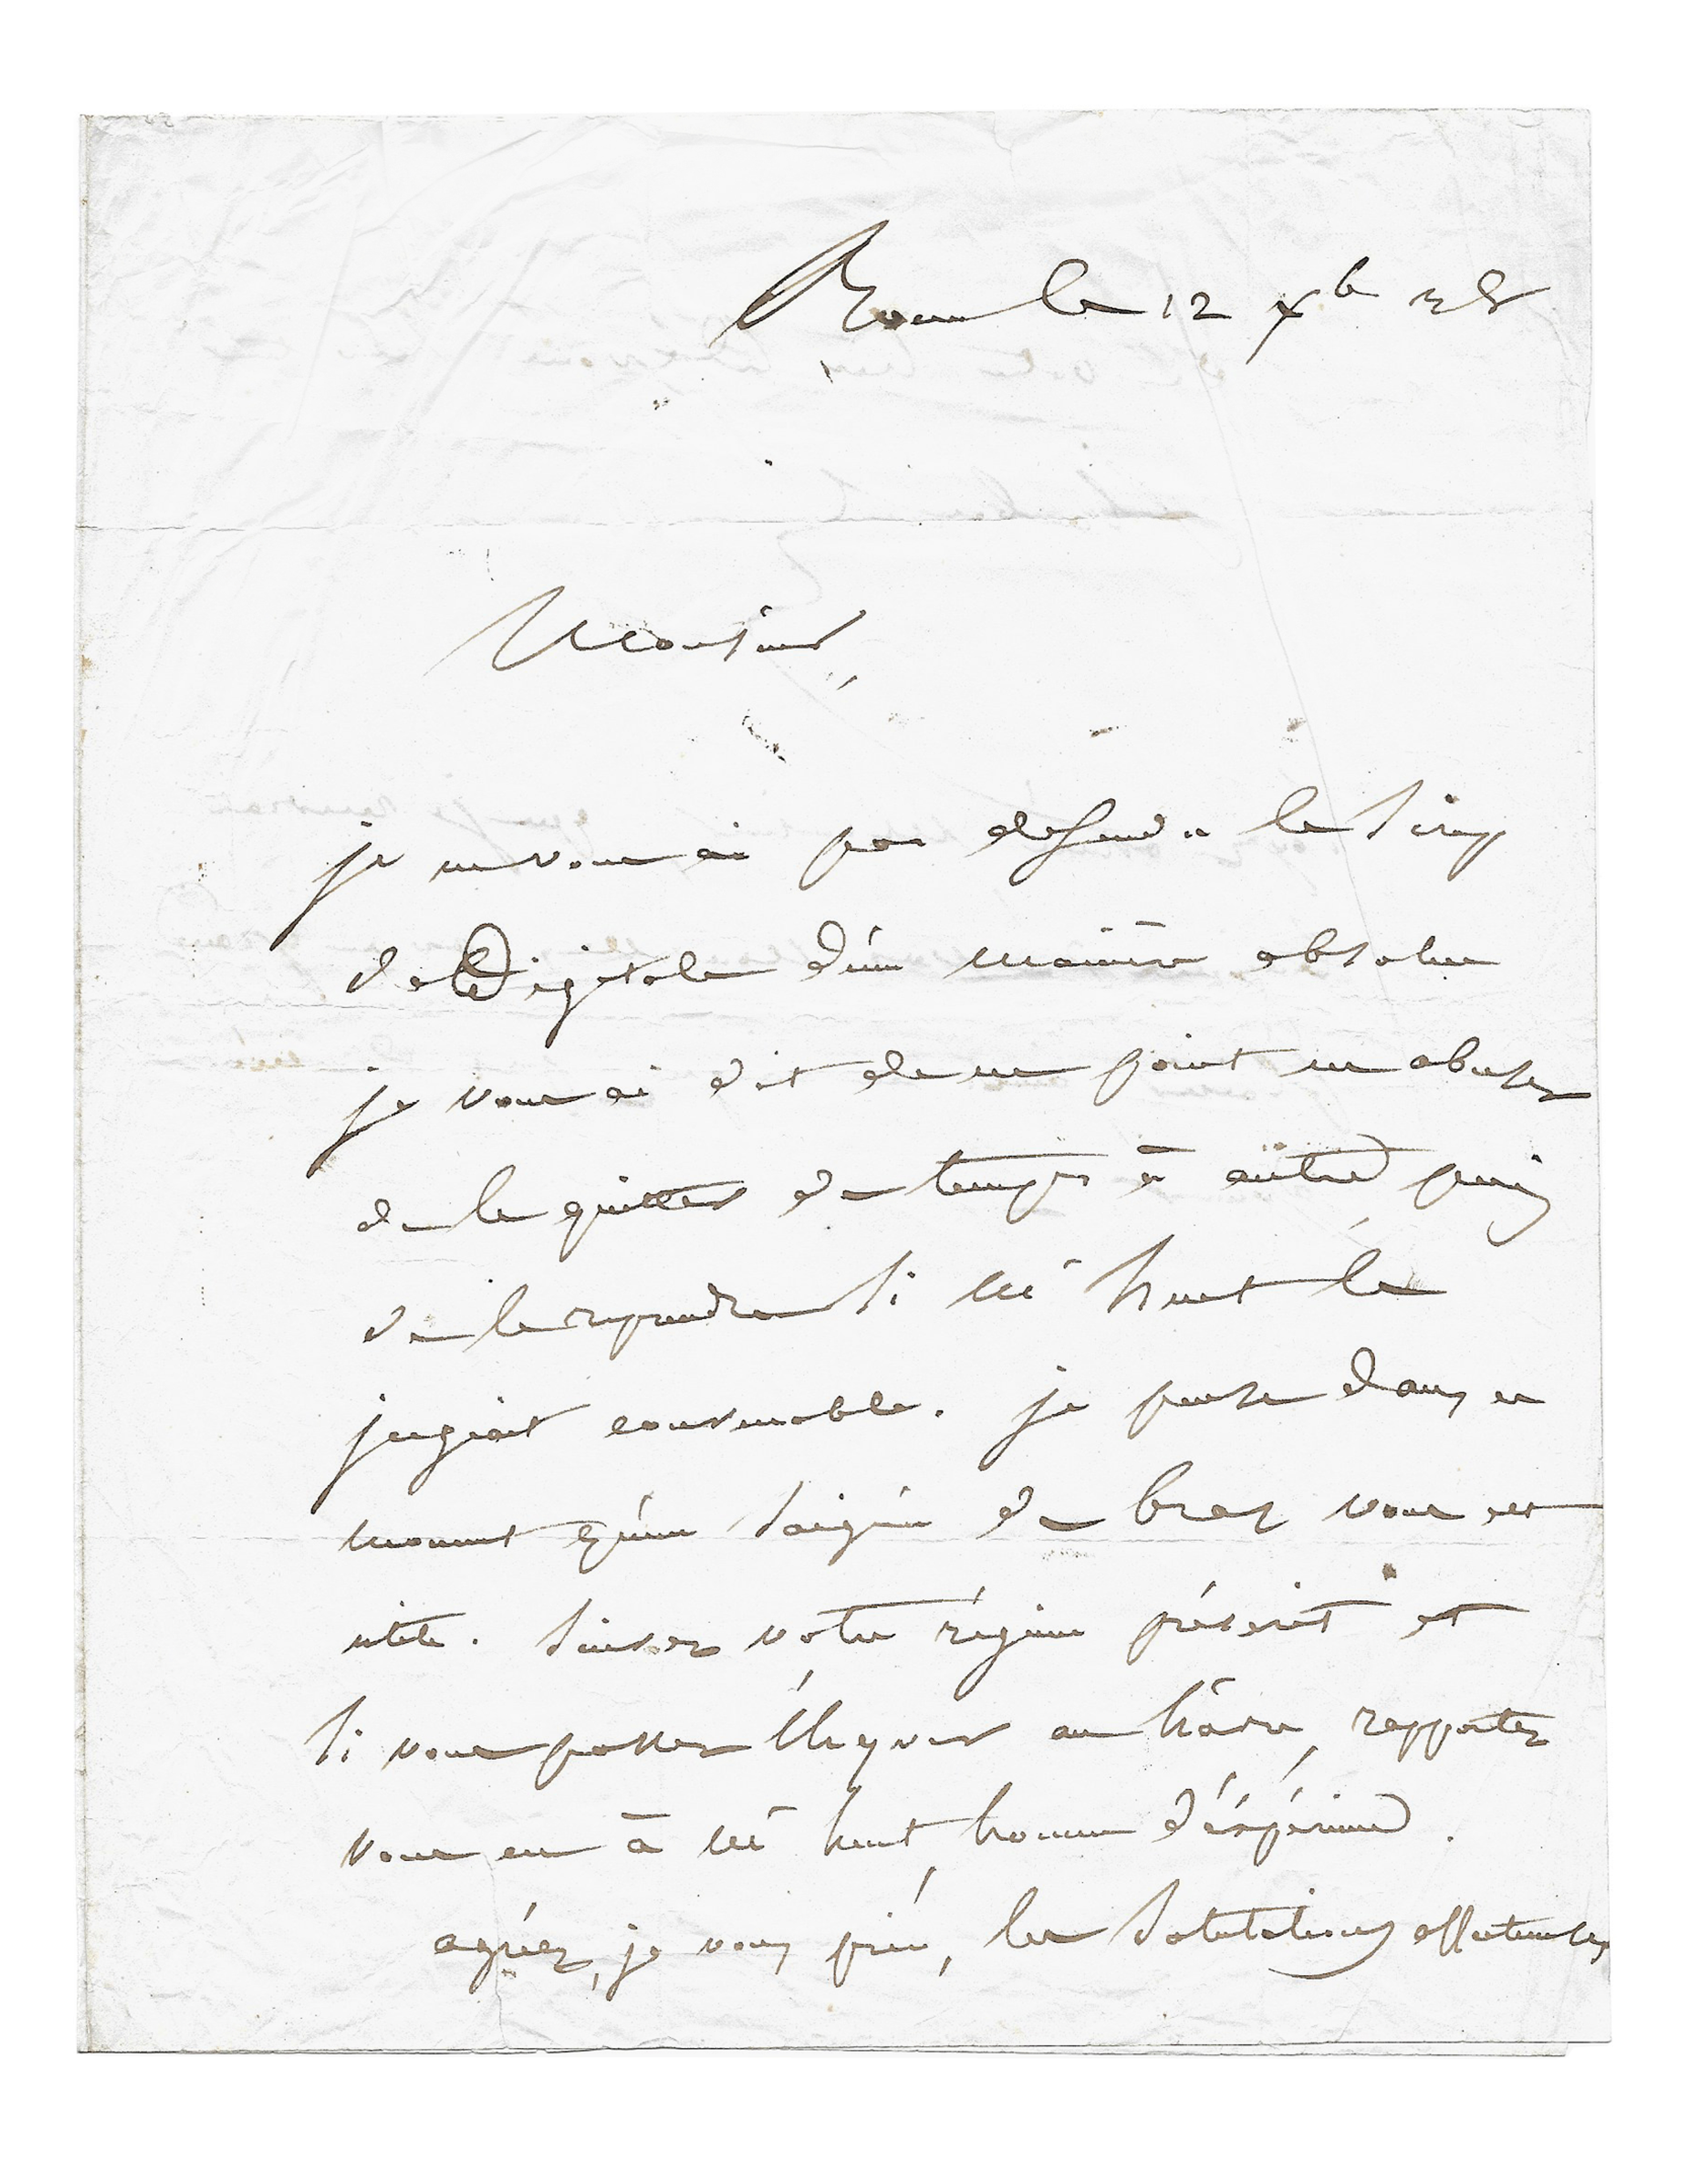 Rouen le 12 Xb 38
Monsieur,
je ne vous ai pas defendu le Sirop
de Digitale d'une manière absolue
je vous ai dit de ne point en abuser
de le quitter de temps à autre puis
de le reprendre si Mr huet le
jugeoit convenable. je pense dans ce
moment qu'une saignée de bras vous est
utile. suivez votre régime préscrit et
si vous passez l'hyver au hâvre, rapportez
vous en à Mr huet, homme d'éxpérience.
agréez, je vous prie, les salutations affectueuses